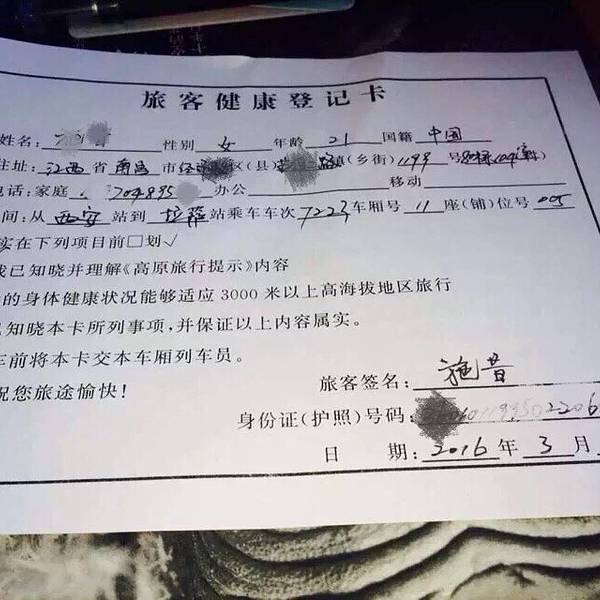 旅客健康登记卡
姓名: 性别 女 年龄 21 国籍 中国
住址: 江西 省 南昌 市 区(县) (乡街) 1199 号
电话: 家庭 704895 办公 移动
间: 从 西安 站到 拉萨 站乘车车次 7223 车厢号 11 座(铺)位号 005
实在下列项目前□划√
我已知晓并理解《高原旅行提示》内容
的身体健康状况能够适应3000米以上高海拔地区旅行
知晓本卡所列事项,并保证以上内容属实。
车前将本卡交本车厢列车员。
祝您旅途愉快!
旅客签名: 施昔
身份证(护照)号码: 2206
日 期: 2016 年 3 月